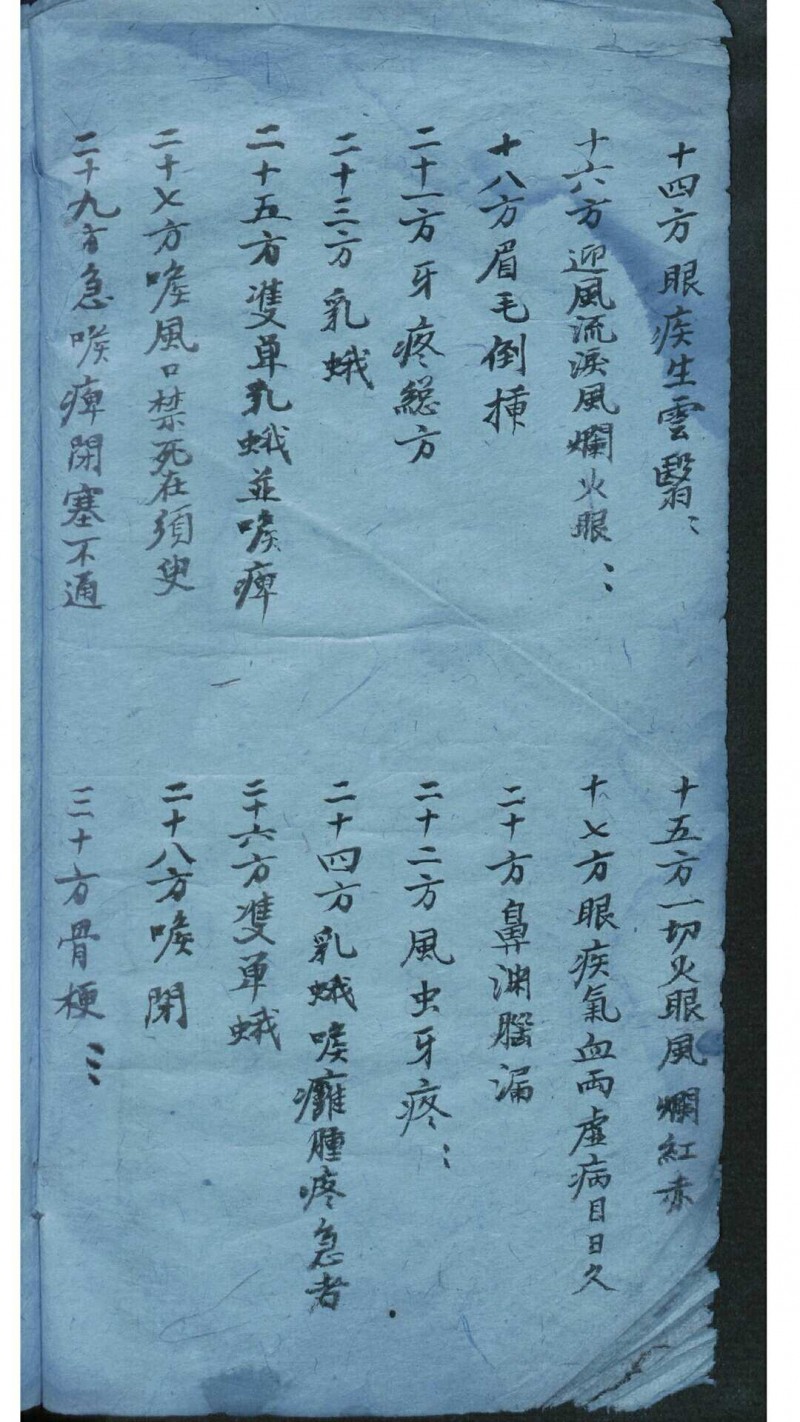 十四方眼疾生雲翳：
十五方一切火眼風爛紅赤
十六方迎風流淚風爛火眼：
十七方眼疾氣血両虛病目日久
十八方眉毛倒揷
二十方鼻渊腦漏
二十一方牙疼總方
二十二方風虫牙疼：
二十三方乳蛾
二十四方乳蛾喉癰腫疼急者
二十五方雙单乳蛾並喉痺
二十六方雙单蛾
二十七方喉風口禁死在須臾
二十八方喉閉
二十九方急喉痺閉塞不通
三十方骨梗